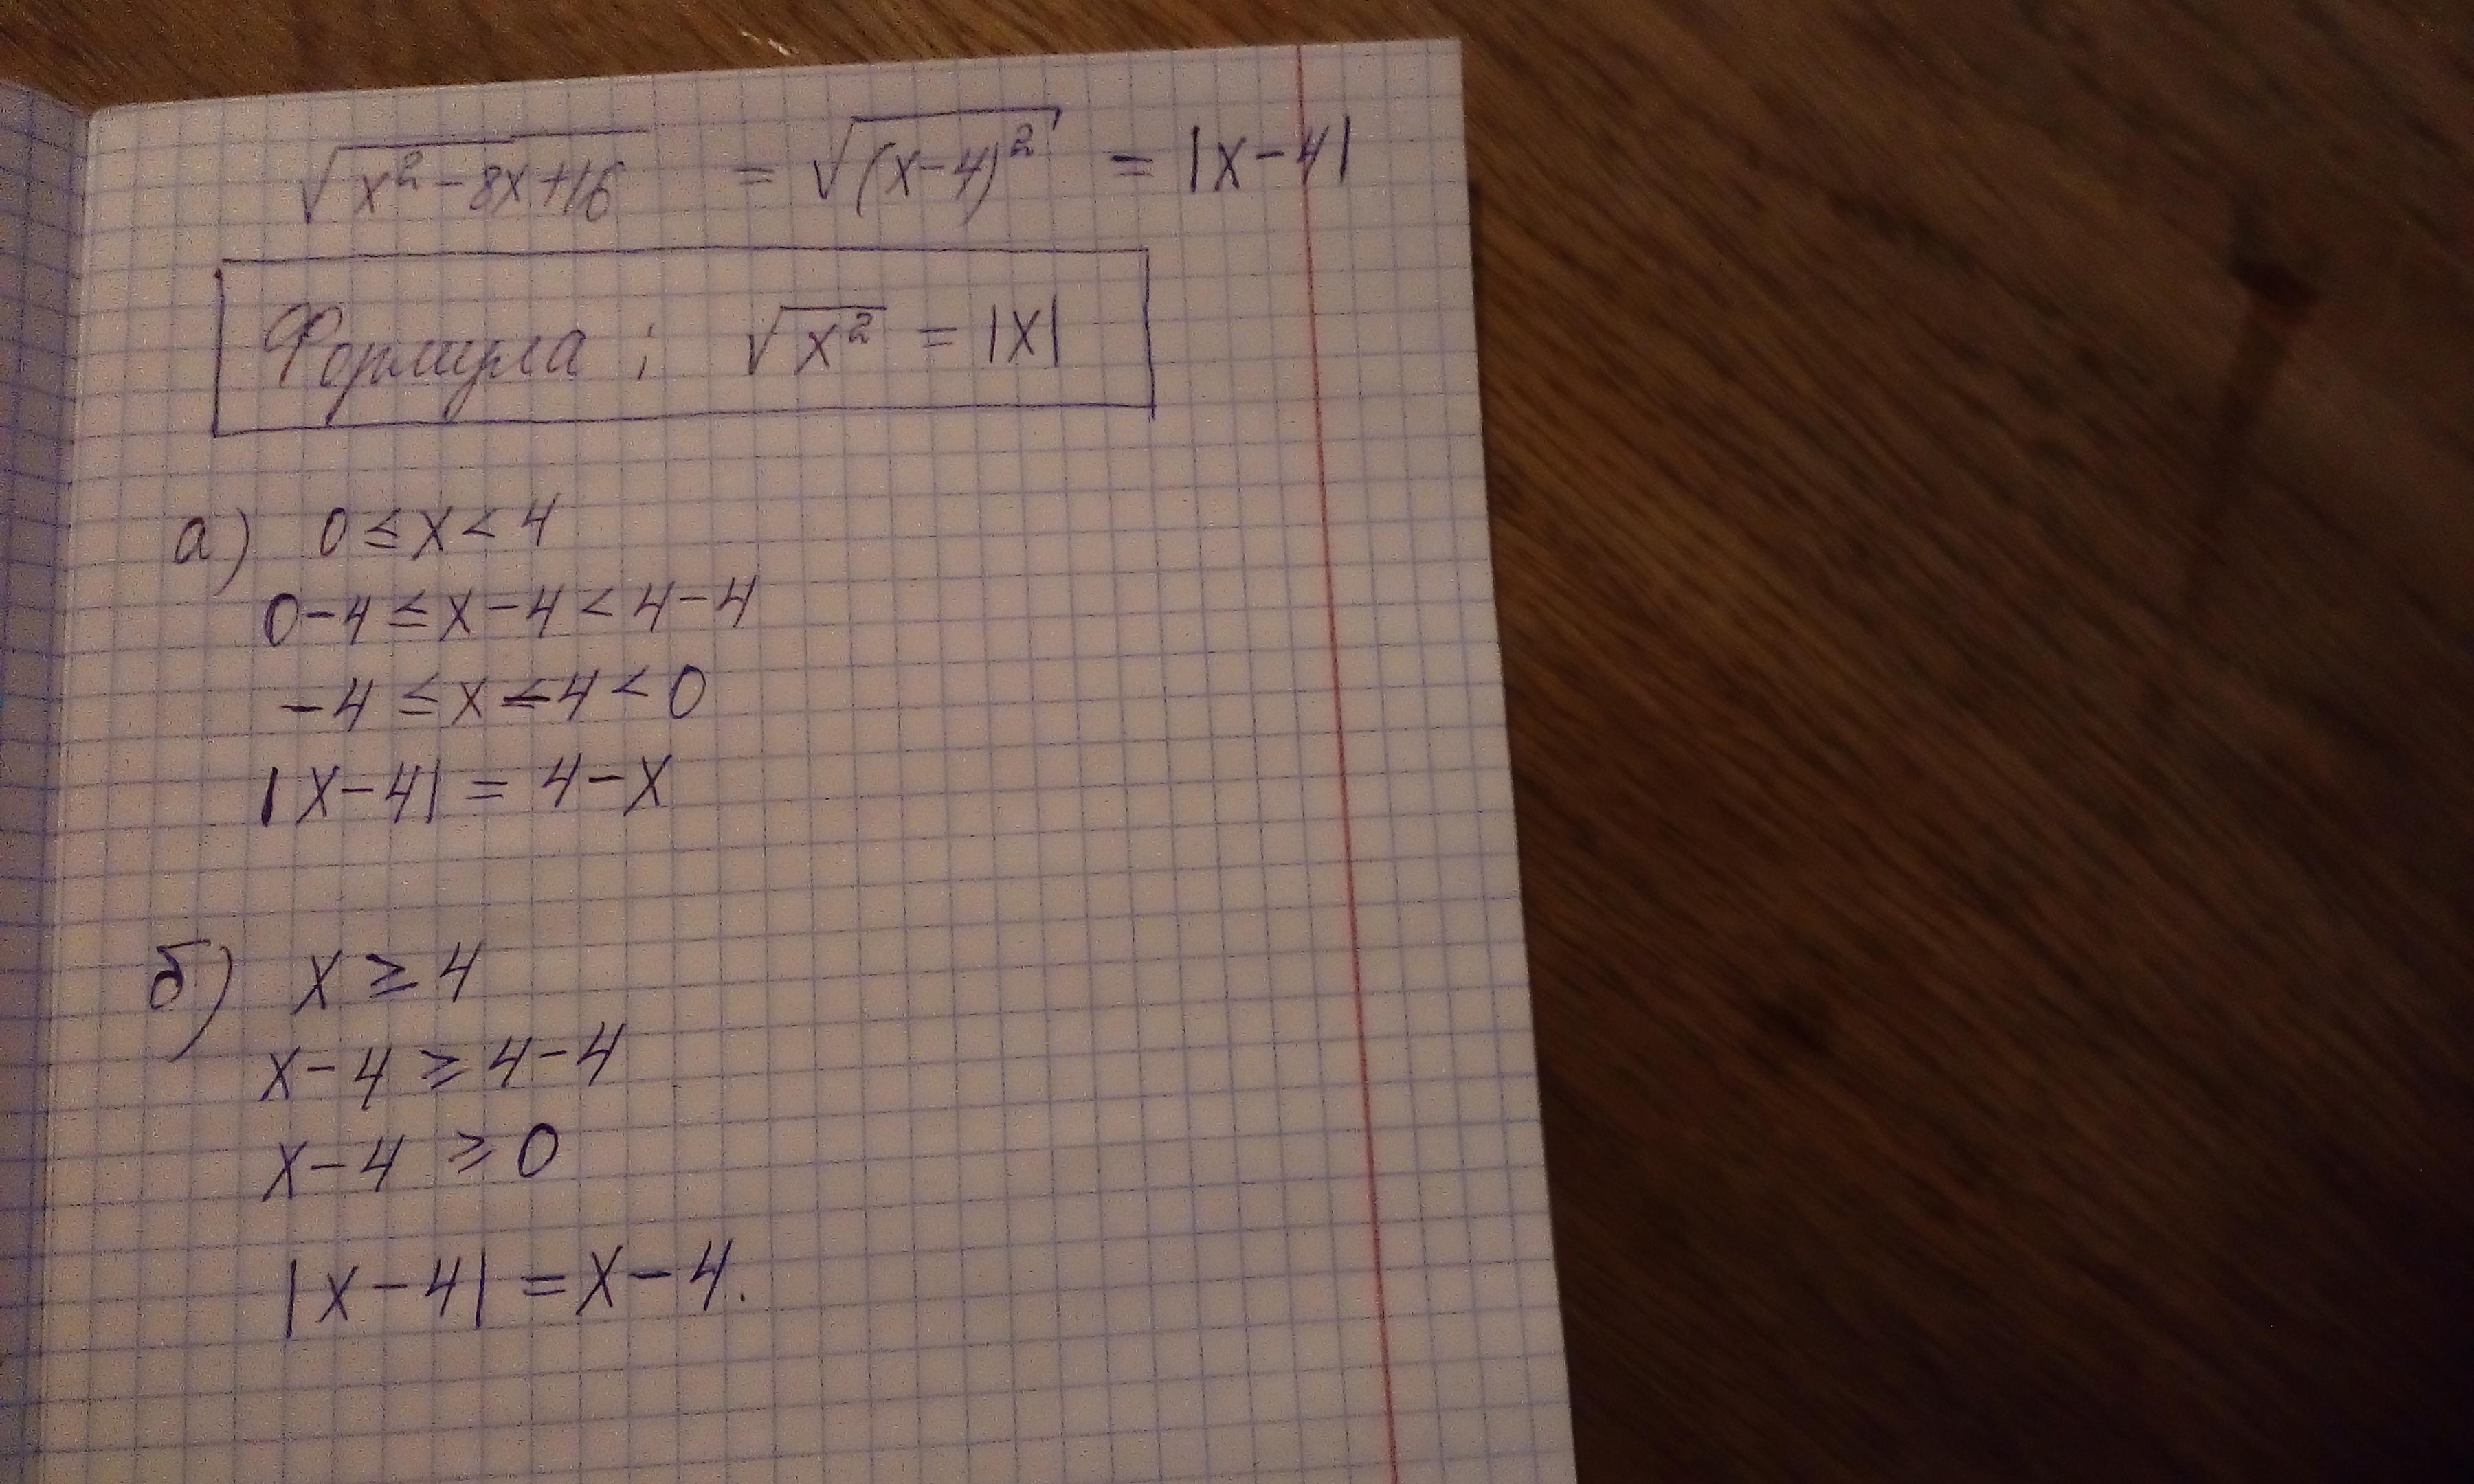 √(x² - 8x + 16) = √((x - 4)²) = |x - 4|
Формула: √(x²) = |x|
а) 0 ≤ x < 4
0 - 4 ≤ x - 4 < 4 - 4
-4 ≤ x - 4 < 0
|x - 4| = 4 - x
б) x ≥ 4
x - 4 ≥ 4 - 4
x - 4 ≥ 0
|x - 4| = x - 4.